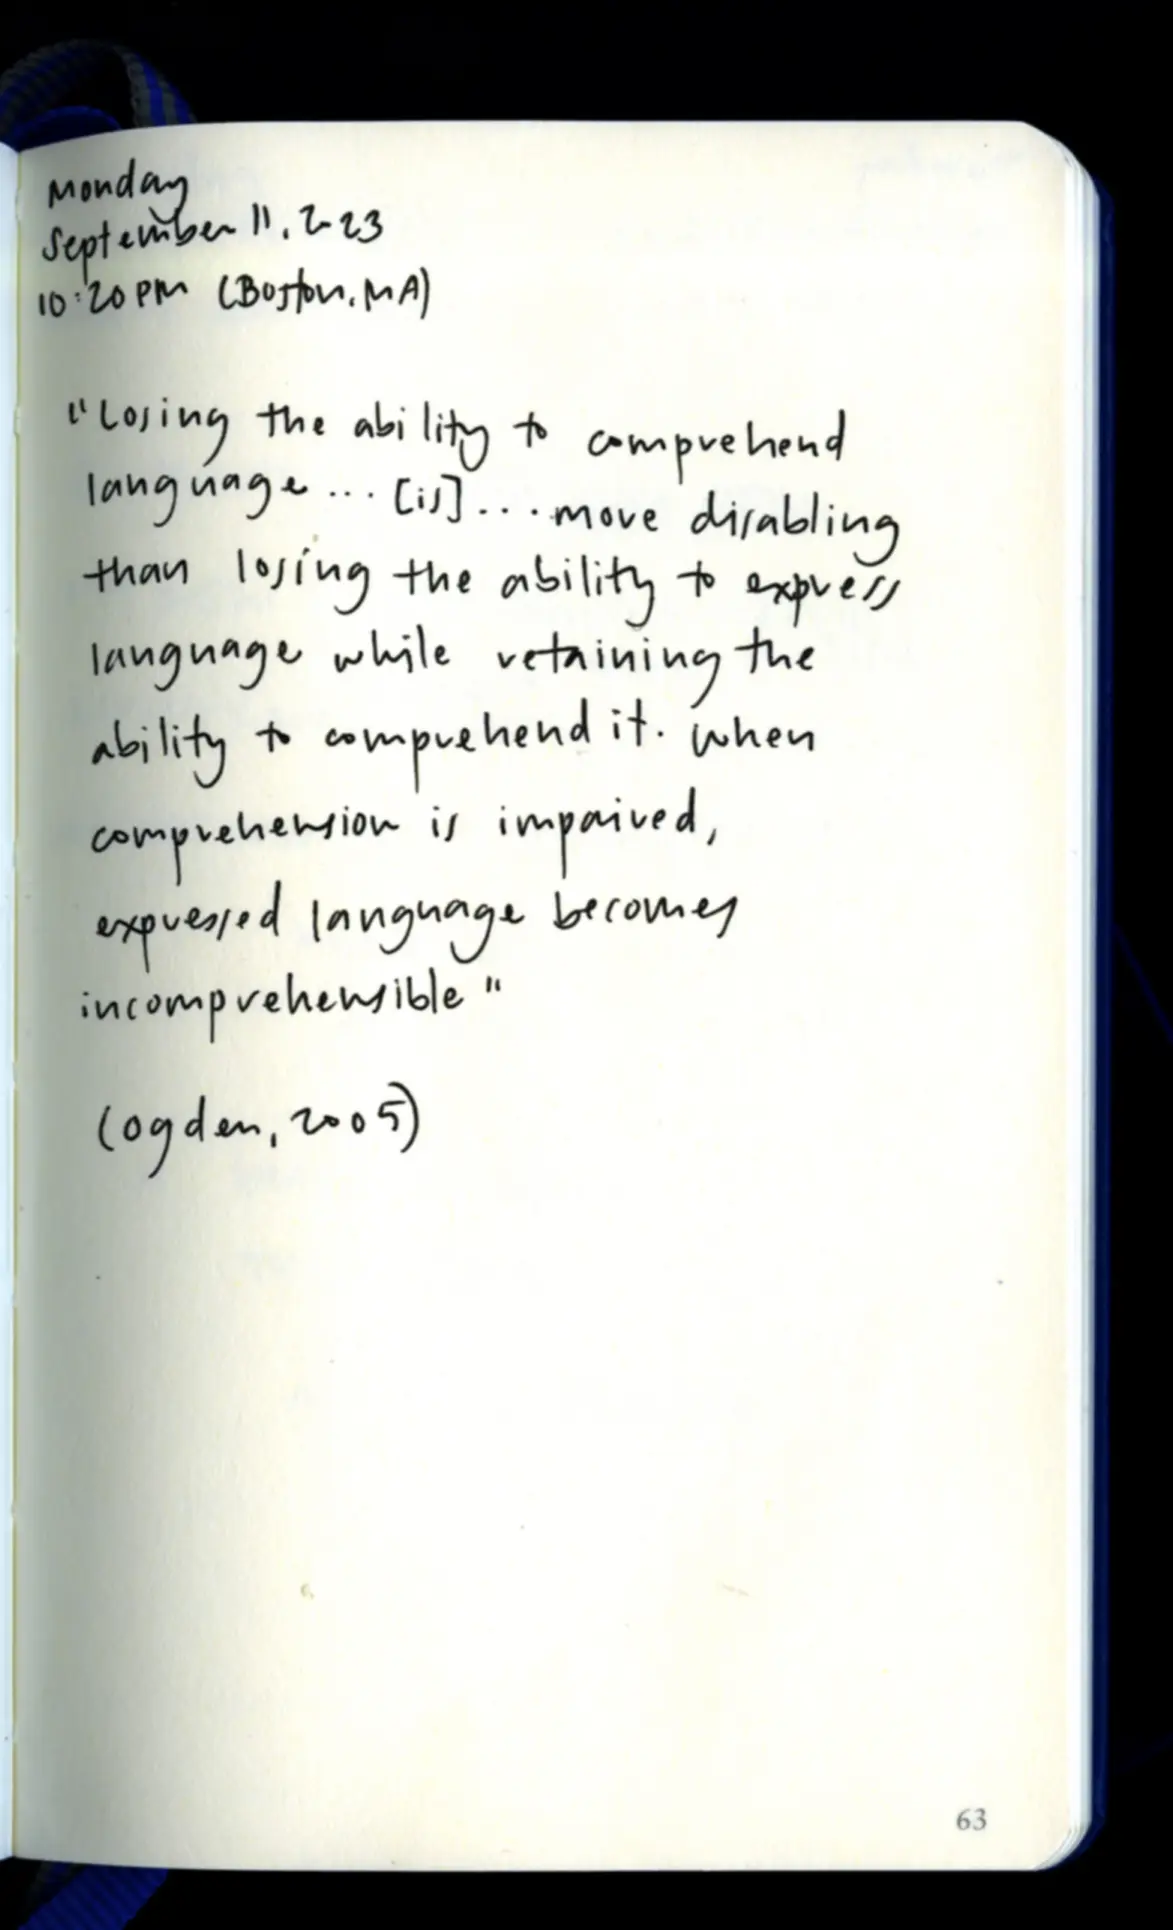 Monday
September 11, 2023
10:20 PM (Boston, MA)
"Losing the ability to comprehend
language ... [is] ... more disabling
than losing the ability to express
language while retaining the
ability to comprehend it. When
comprehension is impaired,
expressed language becomes
incomprehensible"
(Ogden, 2005)
63